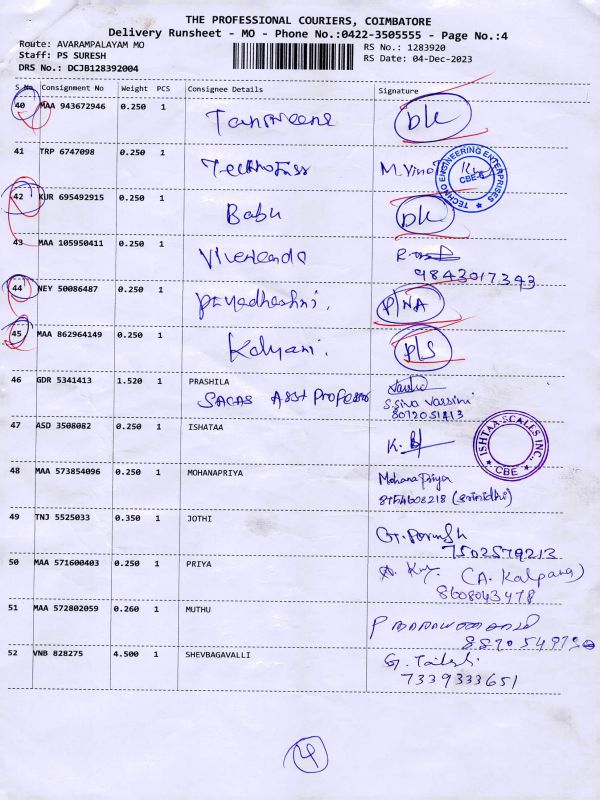 THE PROFESSIONAL COURIERS, COIMBATORE
Delivery Runsheet - MO - Phone No.:0422-3505555 - Page No.:4
Route: AVARAMPALAYAM MO
RS No.: 1283920
Staff: PS SURESH
RS Date: 04-Dec-2023
DRS No.: DCJB128392004
S.No Consignment No Weight PCS Consignee Details Signature
40 MAA 943672946 0.250 1
41 TRP 6747098 0.250 1 M. Vino
TECHNO ENGINEERING ENTERPRISES CBE
42 KUR 695492915 0.250 1 Babu
43 MAA 105950411 0.250 1
9843017343
44 NEY 50086487 0.250 1 P/NA
45 MAA 862964149 0.250 1 Kalyani. P/S
46 GDR 5341413 1.520 1 PRASHILA
SACAS Asst Professor
47 ASD 3508082 0.250 1 ISHATAA K.
ISHTAA SCALES INC. CBE
48 MAA 573854096 0.250 1 MOHANAPRIYA Mohana Priya
49 TNJ 5525033 0.350 1 JOTHI
7502579213
50 MAA 571600403 0.250 1 PRIYA (A. Kalpana)
8608043478
51 MAA 572802059 0.260 1 MUTHU
52 VNB 828275 4.500 1 SHEVBAGAVALLI
7339333651
4